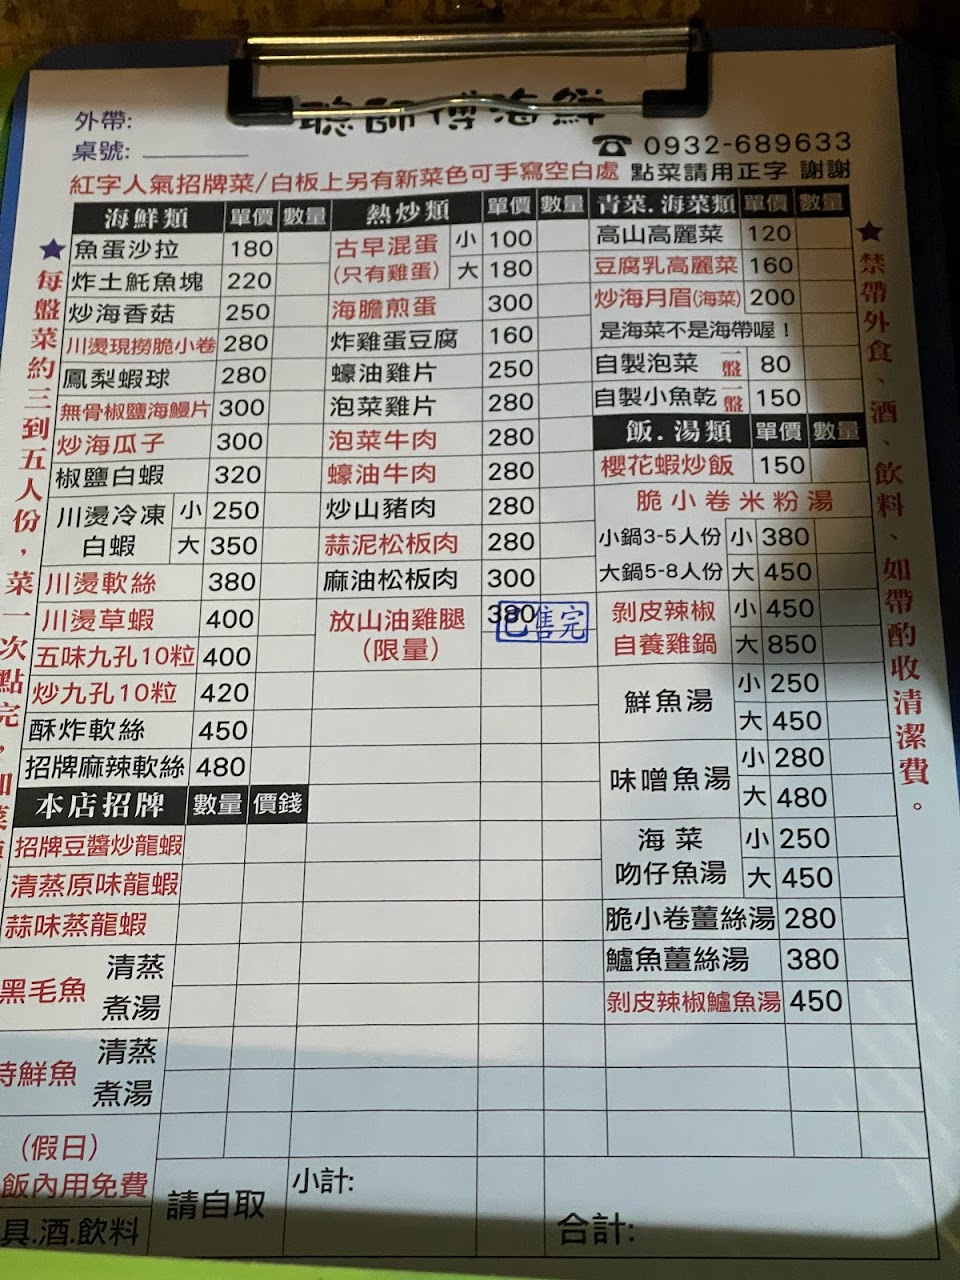 聰師傅海鮮
外帶:
桌號:
☎ 0932-689633
紅字人氣招牌菜/白板上另有新菜色可手寫空白處 點菜請用正字 謝謝
海鮮類 單價 數量
魚蛋沙拉 180
炸土魠魚塊 220
炒海香菇 250
川燙現撈脆小卷 280
鳳梨蝦球 280
無骨椒鹽海鰻片 300
炒海瓜子 300
椒鹽白蝦 320
川燙冷凍白蝦 小 250
大 350
川燙軟絲 380
川燙草蝦 400
五味九孔10粒 400
炒九孔10粒 420
酥炸軟絲 450
招牌麻辣軟絲 480
本店招牌 數量 價錢
招牌豆醬炒龍蝦
清蒸原味龍蝦
蒜味蒸龍蝦
黑毛魚 清蒸
煮湯
時鮮魚 清蒸
煮湯
(假日)
飯內用免費
具.酒.飲料
請自取
熱炒類 單價 數量
古早混蛋 小 100
(只有雞蛋) 大 180
海膽煎蛋 300
炸雞蛋豆腐 160
蠔油雞片 250
泡菜雞片 280
泡菜牛肉 280
蠔油牛肉 280
炒山豬肉 280
蒜泥松板肉 280
麻油松板肉 300
放山油雞腿 380
(限量)
已售完
小計:
青菜.海菜類 單價 數量
高山高麗菜 120
豆腐乳高麗菜 160
炒海月眉(海菜) 200
是海菜不是海帶喔！
自製泡菜 一盤 80
自製小魚乾 一盤 150
飯.湯類 單價 數量
櫻花蝦炒飯 150
脆小卷米粉湯
小鍋3-5人份 小 380
大鍋5-8人份 大 450
剝皮辣椒 小 450
自養雞鍋 大 850
鮮魚湯 小 250
大 450
味噌魚湯 小 280
大 480
海菜 小 250
吻仔魚湯 大 450
脆小卷薑絲湯 280
鱸魚薑絲湯 380
剝皮辣椒鱸魚湯 450
合計:
★每盤菜約三到五人份，菜一次點完，如菜
★禁帶外食、酒、飲料、如帶酌收清潔費。